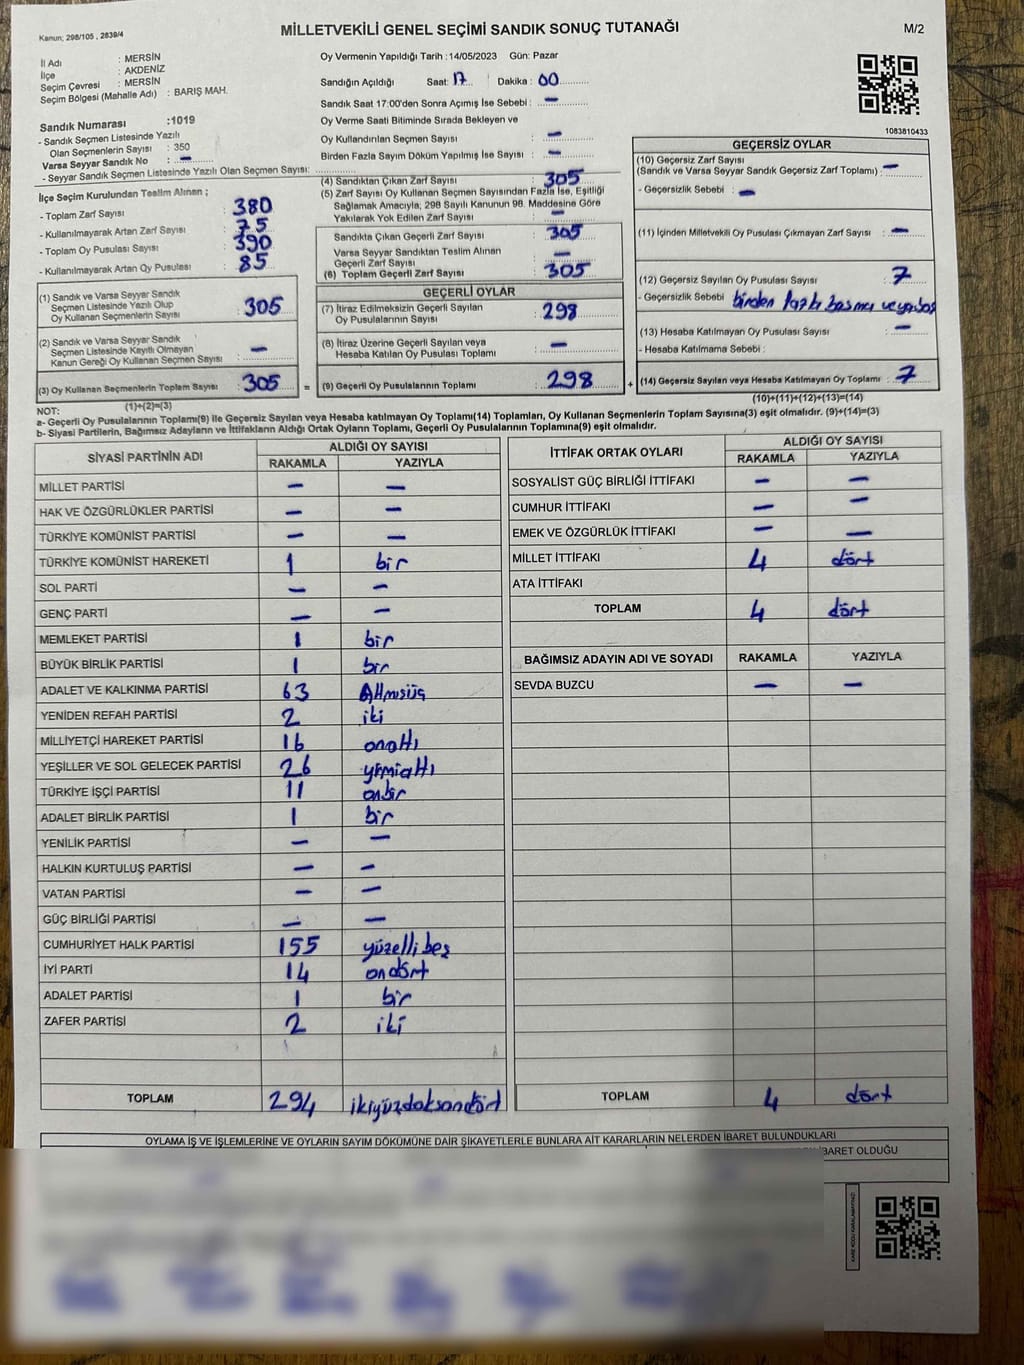 Kanun; 298/105 , 2839/4
MİLLETVEKİLİ GENEL SEÇİMİ SANDIK SONUÇ TUTANAĞI
M/2
İl Adı : MERSİN
İlçe : AKDENİZ
Seçim Çevresi : MERSİN
Seçim Bölgesi (Mahalle Adı) : BARIŞ MAH.
Sandık Numarası :1019
- Sandık Seçmen Listesinde Yazılı
Olan Seçmenlerin Sayısı : 350
Varsa Seyyar Sandık No : —
- Seyyar Sandık Seçmen Listesinde Yazılı Olan Seçmen Sayısı:
Oy Vermenin Yapıldığı Tarih :14/05/2023 Gün: Pazar
Sandığın Açıldığı Saat: 17 Dakika : 00
Sandık Saat 17:00'den Sonra Açımış İse Sebebi : —
Oy Verme Saati Bitiminde Sırada Bekleyen ve
Oy Kullandırılan Seçmen Sayısı : —
Birden Fazla Sayım Döküm Yapılmış İse Sayısı : —
1083810433
İlçe Seçim Kurulundan Teslim Alınan ;
- Toplam Zarf Sayısı : 380
- Kullanılmayarak Artan Zarf Sayısı : 75
- Toplam Oy Pusulası Sayısı : 390
- Kullanılmayarak Artan Oy Pusulası : 85
(1) Sandık ve Varsa Seyyar Sandık
Seçmen Listesinde Yazılı Olup
Oy Kullanan Seçmenlerin Sayısı : 305
(2) Sandık ve Varsa Seyyar Sandık
Seçmen Listesinde Kayıtlı Olmayan
Kanun Gereği Oy Kullanan Seçmen Sayısı : —
(3) Oy Kullanan Seçmenlerin Toplam Sayısı : 305 =
(1)+(2)=(3)
(4) Sandıktan Çıkan Zarf Sayısı : 305
(5) Zarf Sayısı Oy Kullanan Seçmen Sayısından Fazla İse, Eşitliği
Sağlamak Amacıyla, 298 Sayılı Kanunun 98. Maddesine Göre
Yakılarak Yok Edilen Zarf Sayısı : —
Sandıkta Çıkan Geçerli Zarf Sayısı : 305
Varsa Seyyar Sandıktan Teslim Alınan
Geçerli Zarf Sayısı : —
(6) Toplam Geçerli Zarf Sayısı : 305
GEÇERLİ OYLAR
(7) İtiraz Edilmeksizin Geçerli Sayılan
Oy Pusulalarının Sayısı : 298
(8) İtiraz Üzerine Geçerli Sayılan veya
Hesaba Katılan Oy Pusulası Toplamı : —
(9) Geçerli Oy Pusulalarının Toplamı : 298 +
GEÇERSİZ OYLAR
(10) Geçersiz Zarf Sayısı
(Sandık ve Varsa Seyyar Sandık Geçersiz Zarf Toplamı) : —
- Geçersizlik Sebebi : —
(11) İçinden Milletvekili Oy Pusulası Çıkmayan Zarf Sayısı : —
(12) Geçersiz Sayılan Oy Pusulası Sayısı : 7
- Geçersizlik Sebebi birden fazla basma veya boş
(13) Hesaba Katılmayan Oy Pusulası Sayısı : —
- Hesaba Katılmama Sebebi :
(14) Geçersiz Sayılan veya Hesaba Katılmayan Oy Toplamı : 7
(10)+(11)+(12)+(13)=(14)
NOT:
a- Geçerli Oy Pusulalarının Toplamı(9) ile Geçersiz Sayılan veya Hesaba katılmayan Oy Toplamı(14) Toplamları, Oy Kullanan Seçmenlerin Toplam Sayısına(3) eşit olmalıdır. (9)+(14)=(3)
b- Siyasi Partilerin, Bağımsız Adayların ve İttifakların Aldığı Ortak Oyların Toplamı, Geçerli Oy Pusulalarının Toplamına(9) eşit olmalıdır.
SİYASİ PARTİNİN ADI ALDIĞI OY SAYISI
RAKAMLA YAZIYLA
MİLLET PARTİSİ — —
HAK VE ÖZGÜRLÜKLER PARTİSİ — —
TÜRKİYE KOMÜNİST PARTİSİ — —
TÜRKİYE KOMÜNİST HAREKETİ 1 bir
SOL PARTİ — —
GENÇ PARTİ — —
MEMLEKET PARTİSİ 1 bir
BÜYÜK BİRLİK PARTİSİ 1 bir
ADALET VE KALKINMA PARTİSİ 63 Altmışüç
YENİDEN REFAH PARTİSİ 2 iki
MİLLİYETÇİ HAREKET PARTİSİ 16 onaltı
YEŞİLLER VE SOL GELECEK PARTİSİ 26 yirmialtı
TÜRKİYE İŞÇİ PARTİSİ 11 onbir
ADALET BİRLİK PARTİSİ 1 bir
YENİLİK PARTİSİ — —
HALKIN KURTULUŞ PARTİSİ — —
VATAN PARTİSİ — —
GÜÇ BİRLİĞİ PARTİSİ — —
CUMHURİYET HALK PARTİSİ 155 yüzellibeş
İYİ PARTİ 14 ondört
ADALET PARTİSİ 1 bir
ZAFER PARTİSİ 2 iki
TOPLAM 294 ikiyüzdoksandört
İTTİFAK ORTAK OYLARI ALDIĞI OY SAYISI
RAKAMLA YAZIYLA
SOSYALİST GÜÇ BİRLİĞİ İTTİFAKI — —
CUMHUR İTTİFAKI — —
EMEK VE ÖZGÜRLÜK İTTİFAKI — —
MİLLET İTTİFAKI 4 dört
ATA İTTİFAKI
TOPLAM 4 dört
BAĞIMSIZ ADAYIN ADI VE SOYADI RAKAMLA YAZIYLA
SEVDA BUZCU — —
TOPLAM 4 dört
OYLAMA İŞ VE İŞLEMLERİNE VE OYLARIN SAYIM DÖKÜMÜNE DAİR ŞİKAYETLERLE BUNLARA AİT KARARLARIN NELERDEN İBARET BULUNDUKLARI
İBARET OLDUĞU
KARE KODU KARALAMAYINIZ!